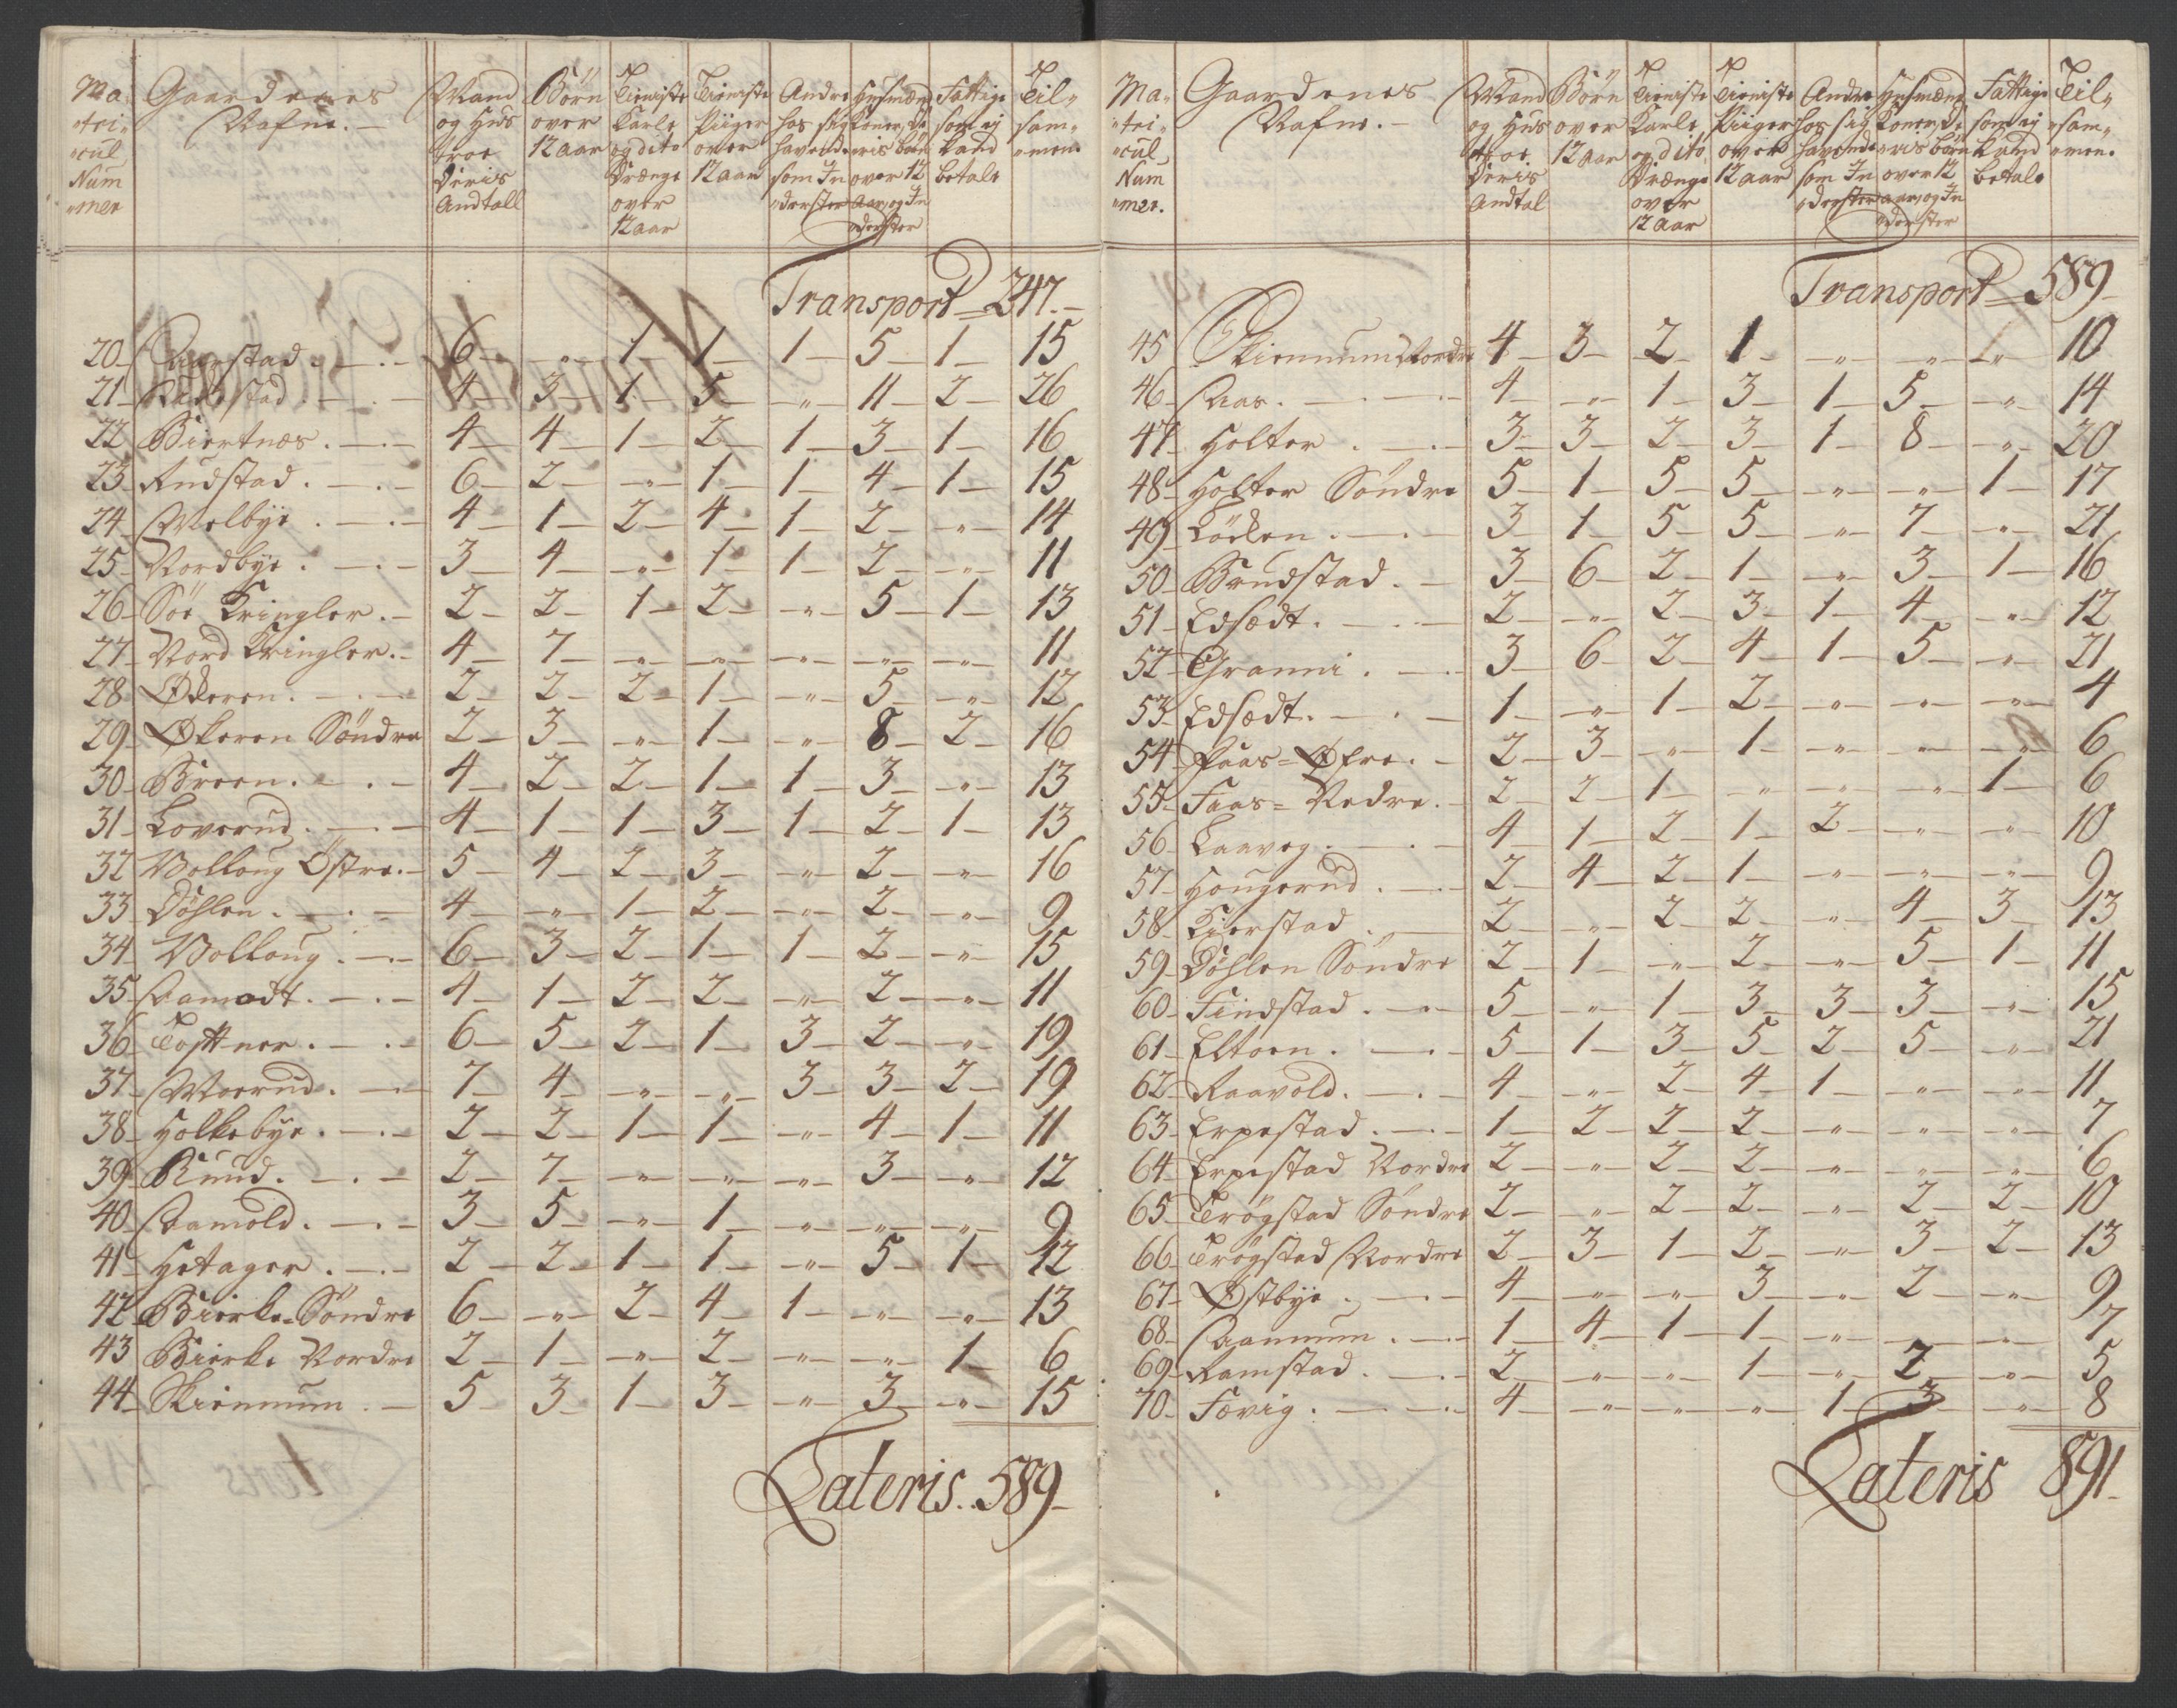 Ma„ Gaardenes Mand Börn Tieniste Tieniste Andre Husmænd Fattige Til„
„tri„ Nafne. og Hus over Karle Piiger hos sig Koner, de„ som ej „sam„
„cul troe 12 aar og dito over havende „ris börn kand „men.
Num Deris Drænge 12 aar som In over 12 betale
„mer Andtall over „derster aar, og In
12 aar „derster
Transport 247.
20 Aarstad. 6 „ 1 1 1 5 1 15
21 4 3 1 5 „ 11 2 26
22 Biertnæs. 4 4 1 2 1 3 1 16
23 Rudstad. 6 2 „ 1 1 4 1 15
24 Melbye. 4 1 2 4 1 2 „ 14
25 Nordbye. 3 4 „ 1 1 2 „ 11
26 Söe Kringler. 2 2 1 2 „ 5 1 13
27 Nord Kringler. 4 7 „ „ „ „ „ 11
28 Økeren. 2 2 2 1 „ 5 „ 12
29 Økeren Söndre 2 3 „ 1 „ 8 2 16
30 Breen. 4 2 2 1 1 3 „ 13
31 Loverud. 4 1 1 3 1 2 1 13
32 Volloug Östre. 5 4 2 3 „ 2 „ 16
33 Döhlen. 4 „ 1 2 „ 2 „ 9
34 Volloug. 6 3 2 1 1 2 „ 15
35 Aamodt. 4 1 2 2 „ 2 „ 11
36 Tosttner. 6 5 2 1 3 2 „ 19
37 Moerud. 7 4 „ „ 3 3 2 19
38 Holkebye. 2 2 1 1 „ 4 1 11
39 Ruud. 2 7 „ „ „ 3 „ 12
40 Aamold. 3 5 „ 1 „ „ „ 9
41 Hetager. 2 2 1 1 „ 5 1 12
42 Bierke Söndre 6 „ 2 4 1 „ „ 13
43 Bierke Nordre 2 1 „ 2 „ „ 1 6
44 Skiennum. 5 3 1 3 „ 3 „ 15
Lateris. 589
Ma„ Gaardenes Mand Börn Tieniste Tieniste Andre Husmænd Fattige Til„
„tri„ Nafne. og Hus over Karle Piiger hos sig Koner, de som ej „sam„
„cul troe. 12 aar og dito over havende „ris börn kand „men.
Num Deris Drænge 12 aar som In over 12 betale
„mer. Andtal over „derster aar, og In
12 aar „derster
Transport 589
45 Skiennum Nordre 4 3 2 1 „ „ „ 10
46 Aas. 4 „ 1 3 1 5 „ 14
47 Holter. 3 3 2 3 1 8 „ 20
48 Holter Söndre 5 1 5 5 „ „ 1 17
49 Löken. 3 1 5 5 „ 7 „ 21
50 Brudstad. 3 6 2 1 „ 3 1 16
51 Edsedt. 2 „ 2 3 1 4 „ 12
52 Granni. 3 6 2 4 1 5 „ 21
53 Edsedt. 1 „ 1 2 „ „ „ 4
54 Faas Øfre. 2 3 „ 1 „ „ „ 6
55 Faas Nedre. 2 2 1 „ „ „ 1 6
56 Laaveg. 4 1 2 1 2 „ „ 10
57 Hougerud. 2 4 2 1 „ „ „ 9
58 Kierstad 2 „ 2 2 „ 4 3 13
59 Döhlen Söndre 2 1 „ 2 „ 5 1 11
60 Findstad. 5 „ 1 3 3 3 „ 15
61 Eltoen. 5 1 3 5 2 5 „ 21
62 Raavold. 4 „ 2 4 1 „ „ 11
63 Erpestad. 1 2 2 2 „ „ „ 7
64 Erpestad Nordre 2 „ 2 2 „ „ „ 6
65 Trögstad Söndre 2 „ 2 2 „ 2 2 10
66 Trögstad Nordre 2 3 1 2 „ 3 2 13
67 Østbye. 4 „ „ 3 „ 2 „ 9
68 Aamum. 1 4 1 1 „ „ „ 7
69 Ramstad. 2 „ „ 1 „ 2 „ 5
70 Fævig. 4 „ „ „ 1 3 „ 8
Lateris 891